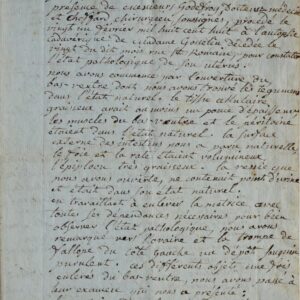 présence de messieurs Godefroi, docteur médecin
et chirurgien soussignés, procédé le
vingt un février mil huit cent huit à l'autopsie
cadavérique de Madame décédée le
vingt du dit mois St honoré, pour constater
l'état pathologique de son utérus.
nous avons commencé par l'ouverture du
bas-ventre dont nous avons trouvé les tégumens
dans l'état naturel. le tissu cellulaire
graisseux avait au moins un pouce d'épaisseur
les muscles du bas-ventre et le péritoine
étoient dans l'état naturel. la surface
externe des intestins nous a paru naturelle
le foie et la rate étaient volumineux
l'épiploon très graisseux. la vessie que
nous avons ouverte, ne contenoit point d'urine
et étoit dans son état naturel.
en travaillant à enlever la matrice avec
toutes ses dépendances nécessaires pour bien
observer l'état pathologique, nous avons
remarqué sur l'ovaire et la trompe de
fallope du côté gauche un dépôt sanguin
purulent. ces différents objets une fois
enlevés du bas-ventre, nous avons passé à
leur examen qui nous a présenté: